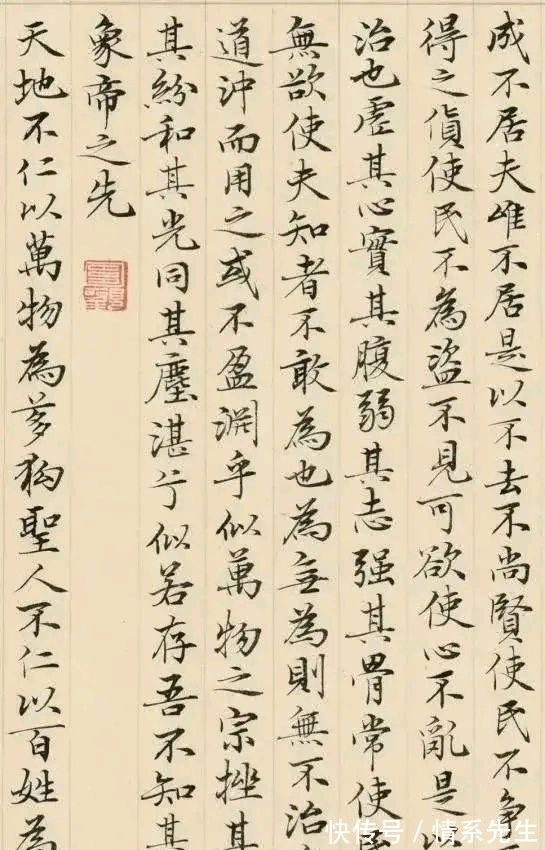 成不居夫唯不居是以不去不尚賢使民不爭
得之貨使民不為盜不見可欲使心不亂是
治也虛其心實其腹弱其志强其骨常使
無欲使夫知者不敢為也為无為則無不治
道沖而用之或不盈淵乎似萬物之宗挫其
其紛和其光同其塵湛兮似若存吾不知其
象帝之先
天地不仁以萬物為芻狗聖人不仁以百姓為
快传号/情系先生